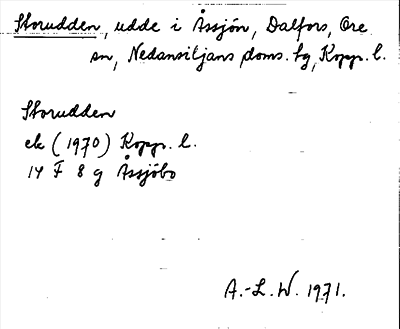 Storudden, udde i Åssjön, Dalfors, Ore
sn, Nedansiljans doms. tg, Kopp. l.
Storudden
ek (1970) Kopp. l.
14 F 8 g Åssjöbo
A.-L. W. 1971.